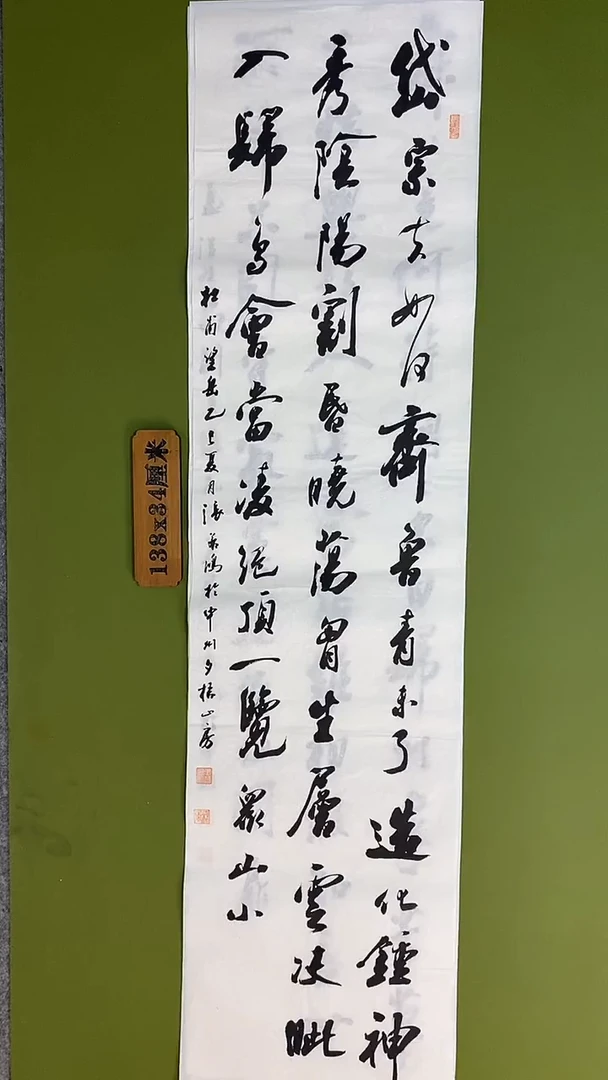 岱宗夫如何齊魯青未了造化鍾神
秀陰陽割昏曉蕩胷生層雲决眦
入歸鳥會當凌絕頂一覽眾山小
杜甫望岳乙巳夏月張 鴻於中州夕 山房
138x34厘米